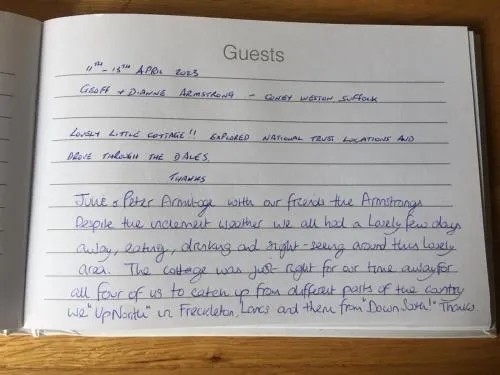 Guests
11TH - 13TH APRIL 2023
GEOFF + DIANNE ARMSTRONG - CONEY WESTON SUFFOLK
LOVELY LITTLE COTTAGE!! EXPLORED NATIONAL TRUST LOCATIONS AND
DROVE THROUGH THE DALES.
THANKS
June & Peter Armitage with our friends the Armstrongs
Despite the inclement weather we all had a lovely few days
away, eating, drinking and sight-seeing around this lovely
area. The cottage was just right for our time away for
all four of us to catch up from different parts of the country
We "Up North" in Freckleton, Lancs and them from "Down South!" Thanks.